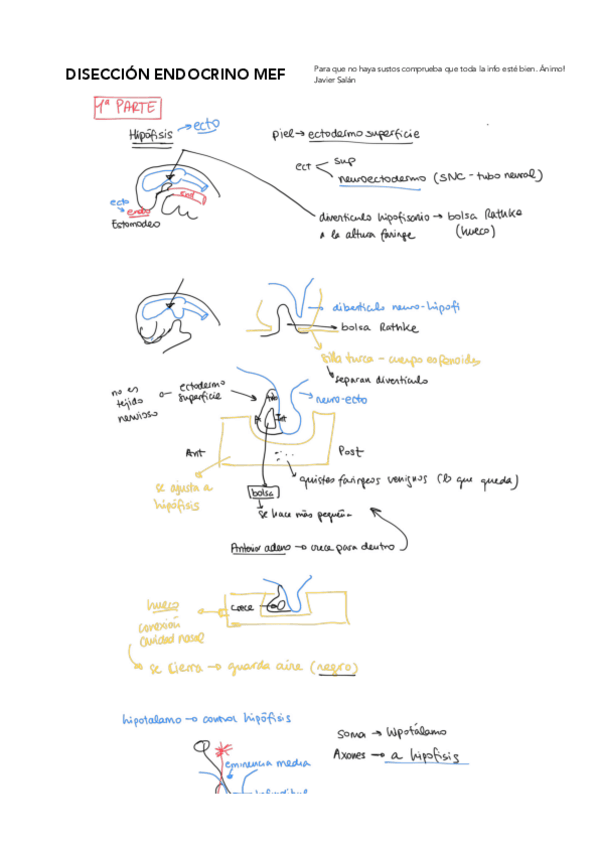 DISECCIÓN ENDOCRINO MEF
Para que no haya sustos comprueba que toda la info esté bien. Ánimo!
Javier Salán
1ª PARTE
Hipófisis → ecto
piel → ectodermo superficie
ect
sup
neuroectodermo (SNC - tubo neural)
ecto
endo
End
Estomodeo
divertículo hipofisario → bolsa Rathke
a la altura faringe
(hueco)
diberticulo neuro-hipofi
bolsa Rathke
silla turca - cuerpo esfenoides
separan divertículo
no es
tejido
nervioso
ectodermo
superficie
neuro-ecto
Int
Ant
Post
se ajusta a
hipófisis
quistes faríngeos venignos (lo que queda)
bolsa
se hace más pequeña
Anterior adeno → crece para dentro
hueco
conexión
cavidad nasal
crece
se cierra → guarda aire (negro)
hipotalamo → control hipófisis
Soma → hipotálamo
Axones → a hipofisis
eminencia media